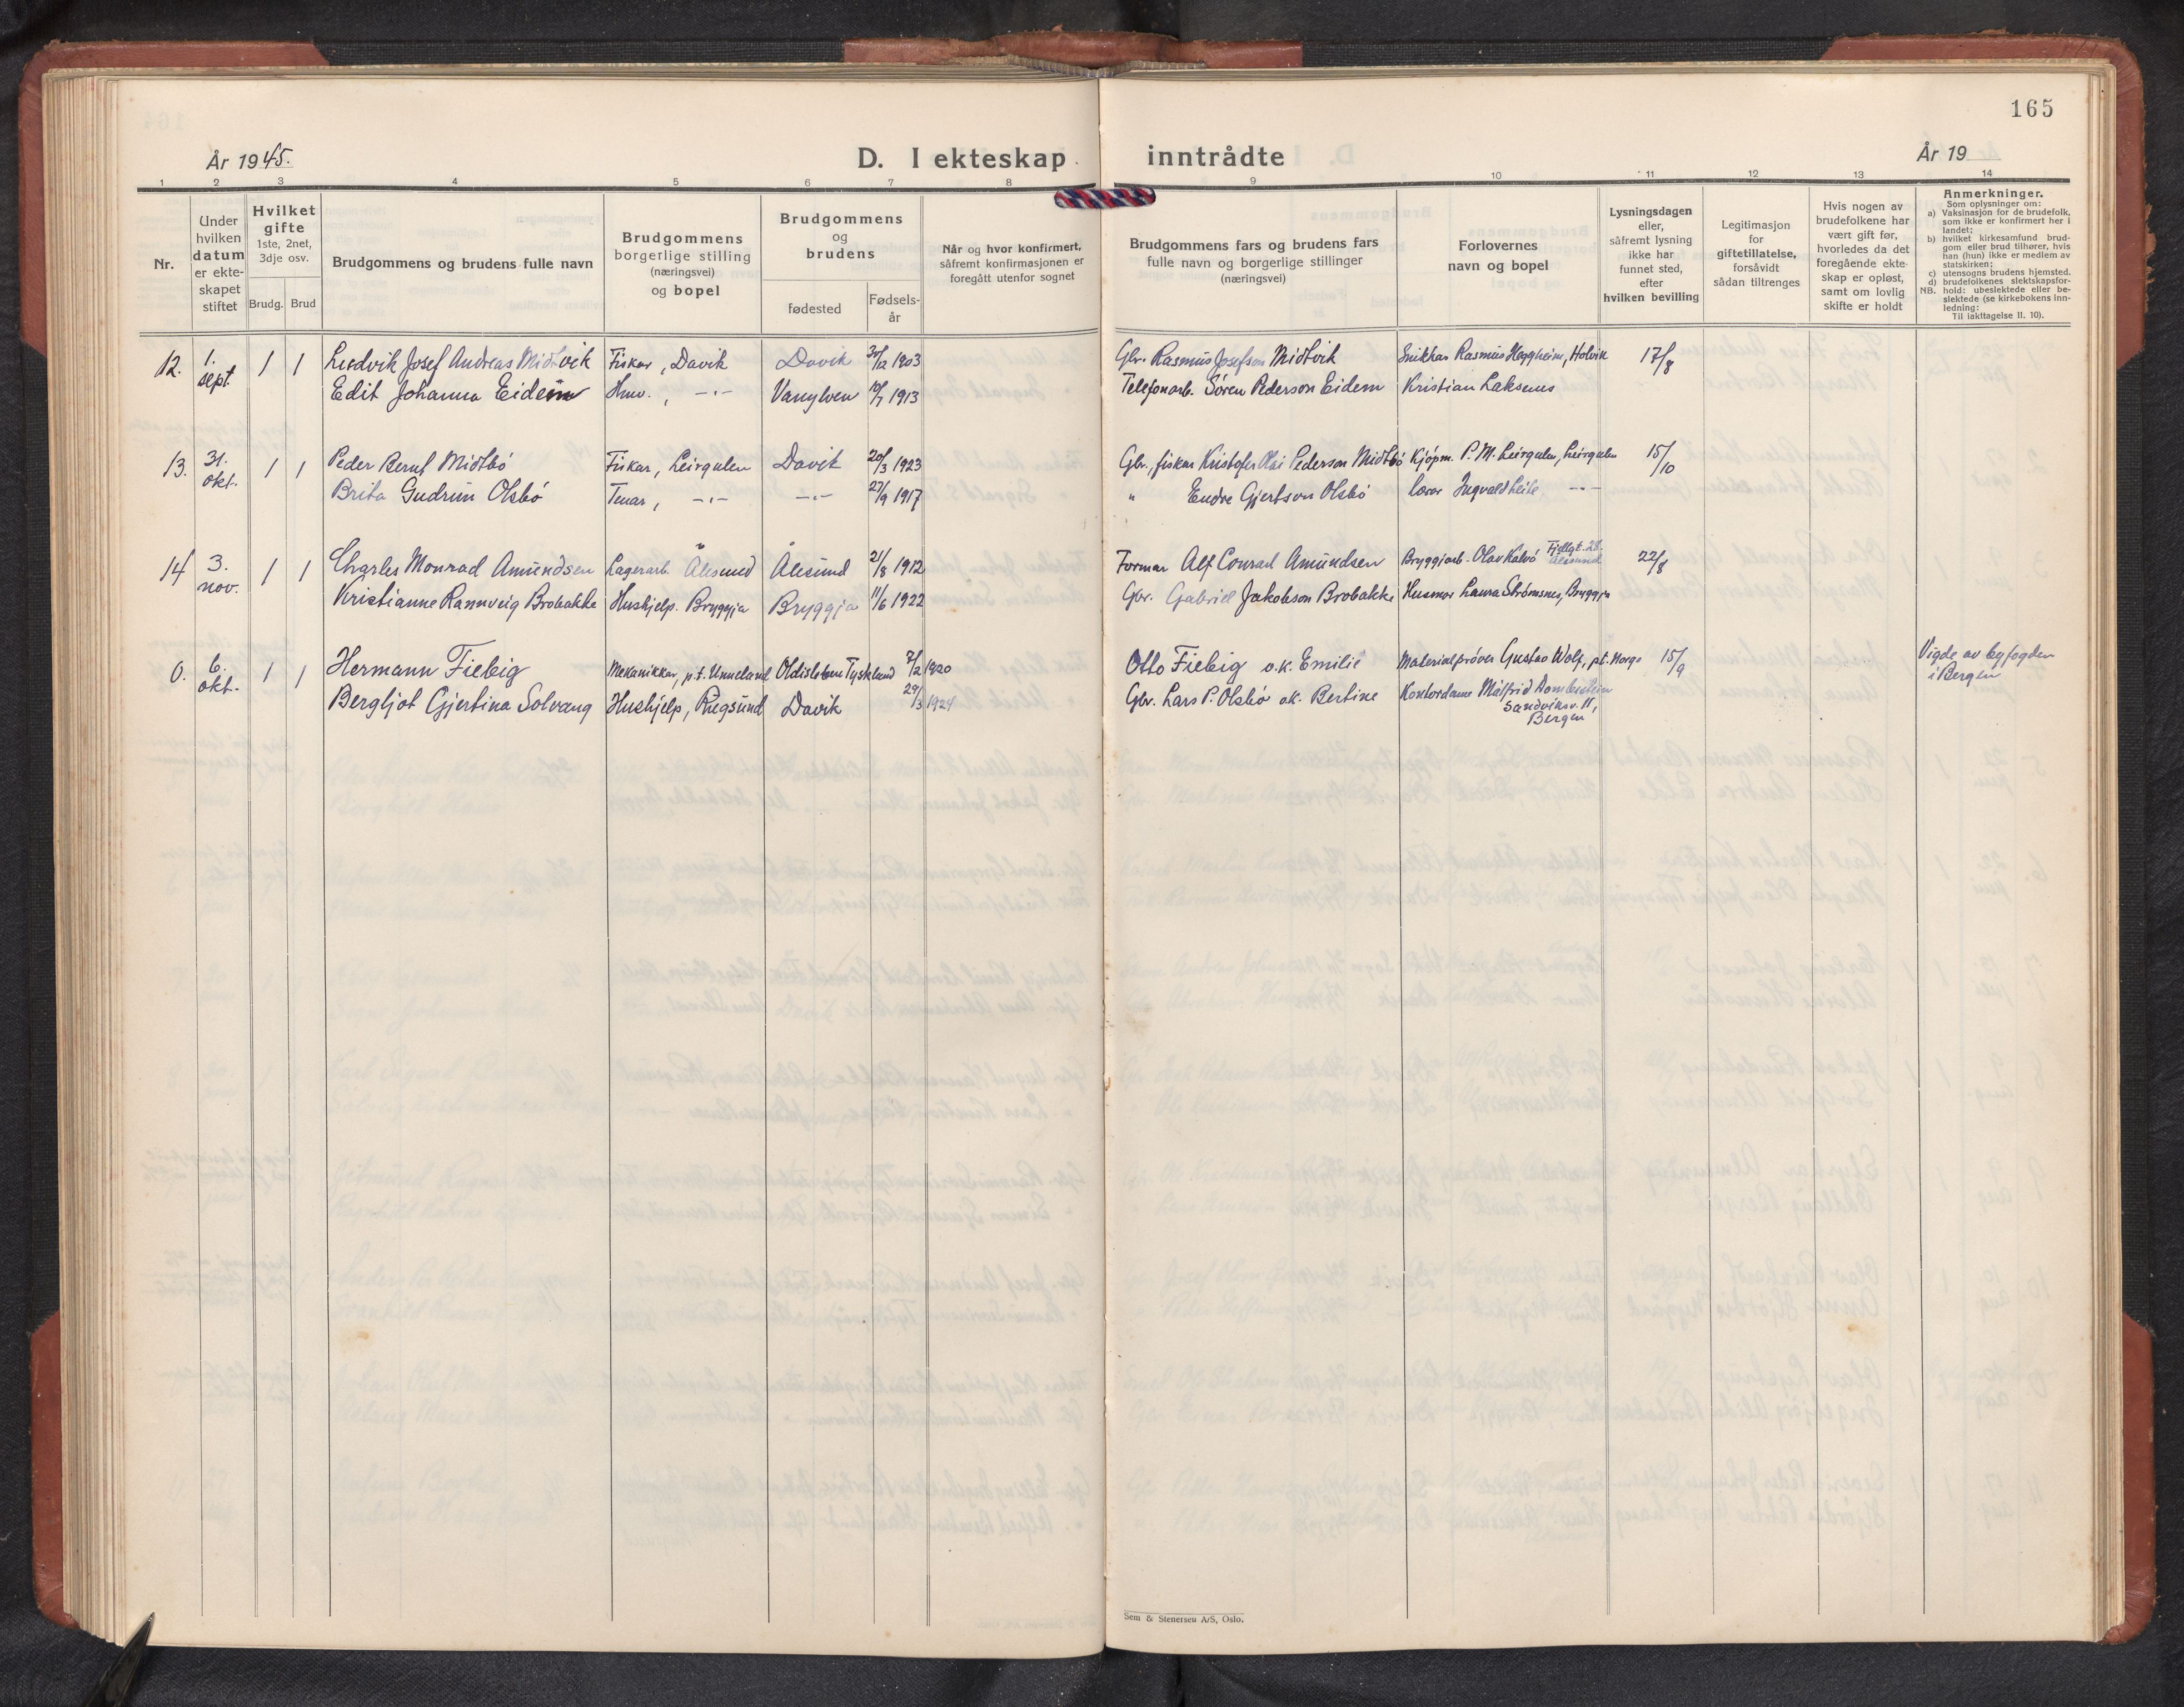 165
År 1945.
D. I ekteskap inntrådte
År 19
1 2 3 4 5 6 7 8 9 10 11 12 13 14
Nr.
Under
hvilken
datum
er ekte-
skapet
stiftet
Hvilket
gifte
1ste, 2net,
3dje osv.
Brudg. Brud
Brudgommens og brudens fulle navn
Brudgommens
borgerlige stilling
(næringsvei)
og bopel
Brudgommens
og
brudens
fødested
Fødsels-
år
Når og hvor konfirmert,
såfremt konfirmasjonen er
foregått utenfor sognet
Brudgommens fars og brudens fars
fulle navn og borgerlige stillinger
(næringsvei)
Forlovernes
navn og bopel
Lysningsdagen
eller,
såfremt lysning
ikke har
funnet sted,
efter
hvilken bevilling
Legitimasjon
for
giftetillatelse,
forsåvidt
sådan tiltrenges
Hvis nogen av
brudefolkene har
vært gift før,
hvorledes da det
foregående ekte-
skap er opløst,
samt om lovlig
skifte er holdt
Anmerkninger.
Som oplysninger om:
a) Vaksinasjon for de brudefolk,
som ikke er konfirmert her i
landet;
b) hvilket kirkesamfund brud-
gom eller brud tilhører, hvis
han (hun) ikke er medlem av
statskirken;
c) utensogns brudens hjemsted.
d) brudefolkenes slektskapsfor-
NB. hold: ubeslektede eller be-
slektede (se kirkebokens inn-
ledning:
Til iakttagelse II. 10).
12. 1. sept. 1 1 Ludvik Josef Andreas Midtvik Fiskar, Davik Davik 30/12 1903 Gbr. Rasmus Josefson Midtvik Snikkar Rasmus Heggheim, Holvik 17/8
Edit Johanna Eidem Hmv., -"- Vanylven 10/7 1913 Telefonarb. Søren Pederson Eidem Kristian Laksenes
13. 31. okt. 1 1 Peder Bernt Midtbö Fiskar, Leirgulen Davik 20/3 1923 Gbr., fiskar Kristofer Olai Pederson Midtbö Kjöpm. P. M. Leirgulen, Leirgulen 15/10
Brita Gudrun Olsbö Tenar, -"- -"- 27/9 1917 " Endre Gjertson Olsbö Lærar Ingvald Leite -"-
14 3. nov. 1 1 Charles Monrad Amundsen Lagerarb. Ålesund Ålesund 21/8 1912 Formar Alf Conrad Amundsen Bryggjarb. Olav Kalvö Fjellgt. 28. Ålesund 22/8
Kristianne Rannveig Brobakke Hushjelp. Bryggja Bryggja 11/6 1922 Gbr. Gabriel Jakobson Brobakke Husmor Laura Strömsnes, Bryggja
0. 6. okt. 1 1 Hermann Fiebig Mekanikkar, p.t. Unneland Oldisleben Tyskland 7/2 1920 Otto Fiebig o.k. Emilie Materialprøver Gustav Wolf, p.t. Norge 15/9 Vigde av byfogden
i Bergen
Bergljot Gjertina Solvang Hushjelp, Rugsund Davik 29/3 1924 Gbr. Lars P. Olsbö o.k. Bertine Kontordame Målfrid Dombestein
Sandviksv. 11,
Bergen
Sem & Stenersen A/S, Oslo.